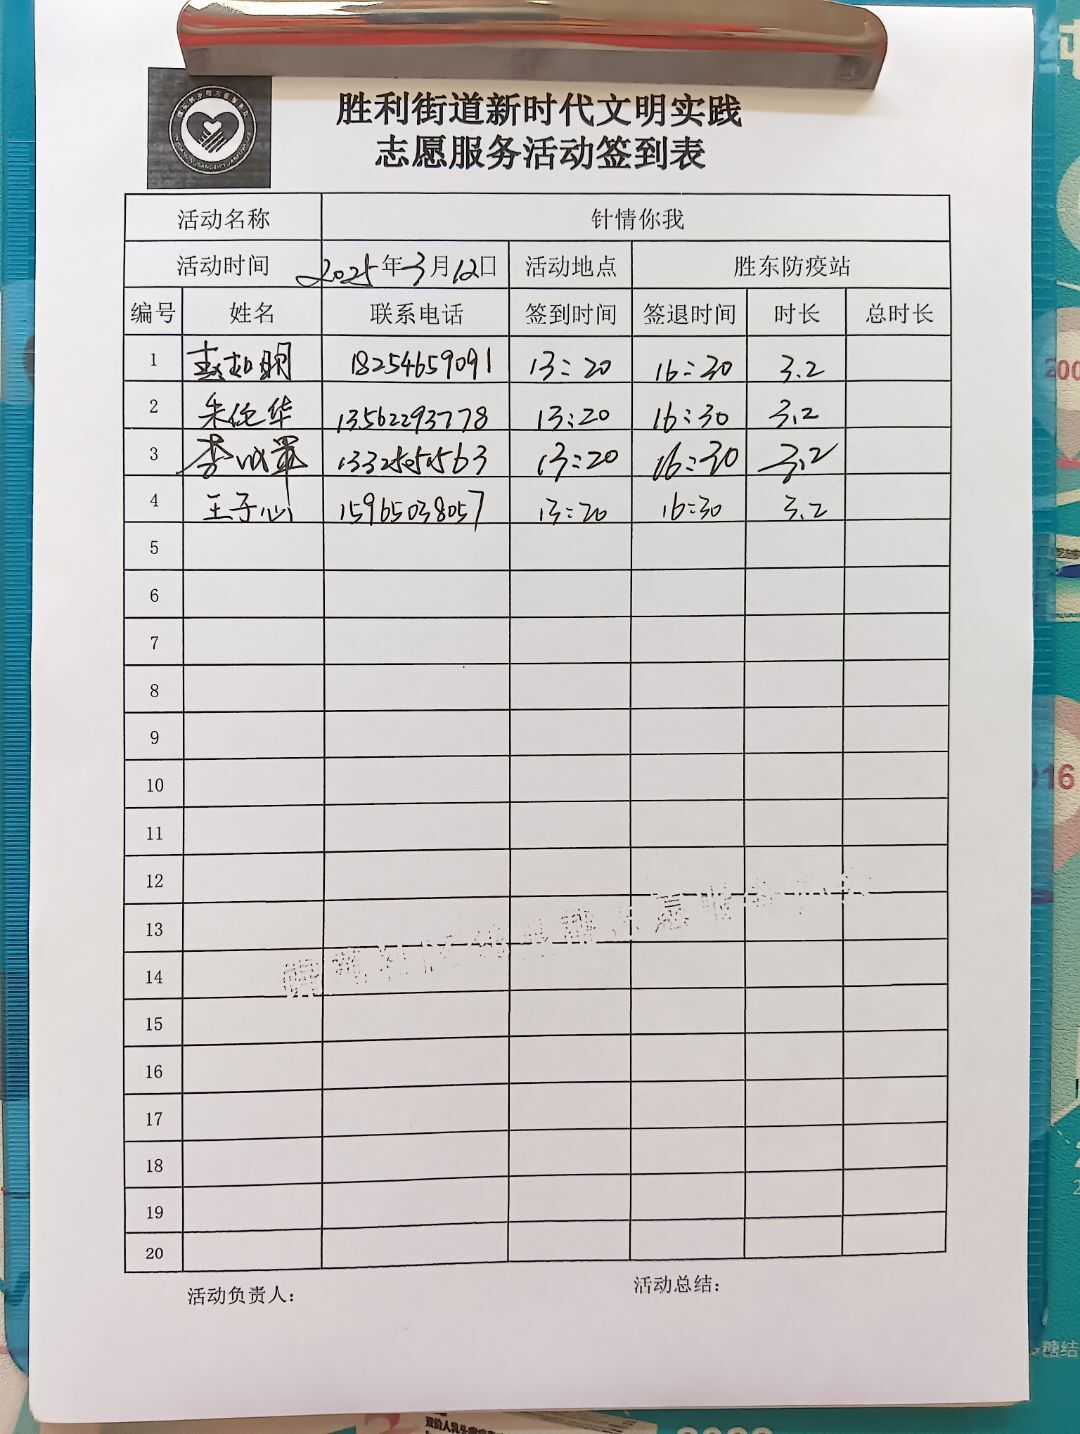 胜利街道新时代文明实践
志愿服务活动签到表
活动名称 针情你我
活动时间 2025年3月12日 活动地点 胜东防疫站
编号 姓名 联系电话 签到时间 签退时间 时长 总时长
1 18254659091 13:20 16:30 3.2
2 朱佗华 13562293778 13:20 16:30 3.2
3 13325051563 13:20 16:30 3.2
4 王子心 15965038057 13:20 16:30 3.2
5
6
7
8
9
10
11
12
13
14
15
16
17
18
19
20
活动负责人：
活动总结：